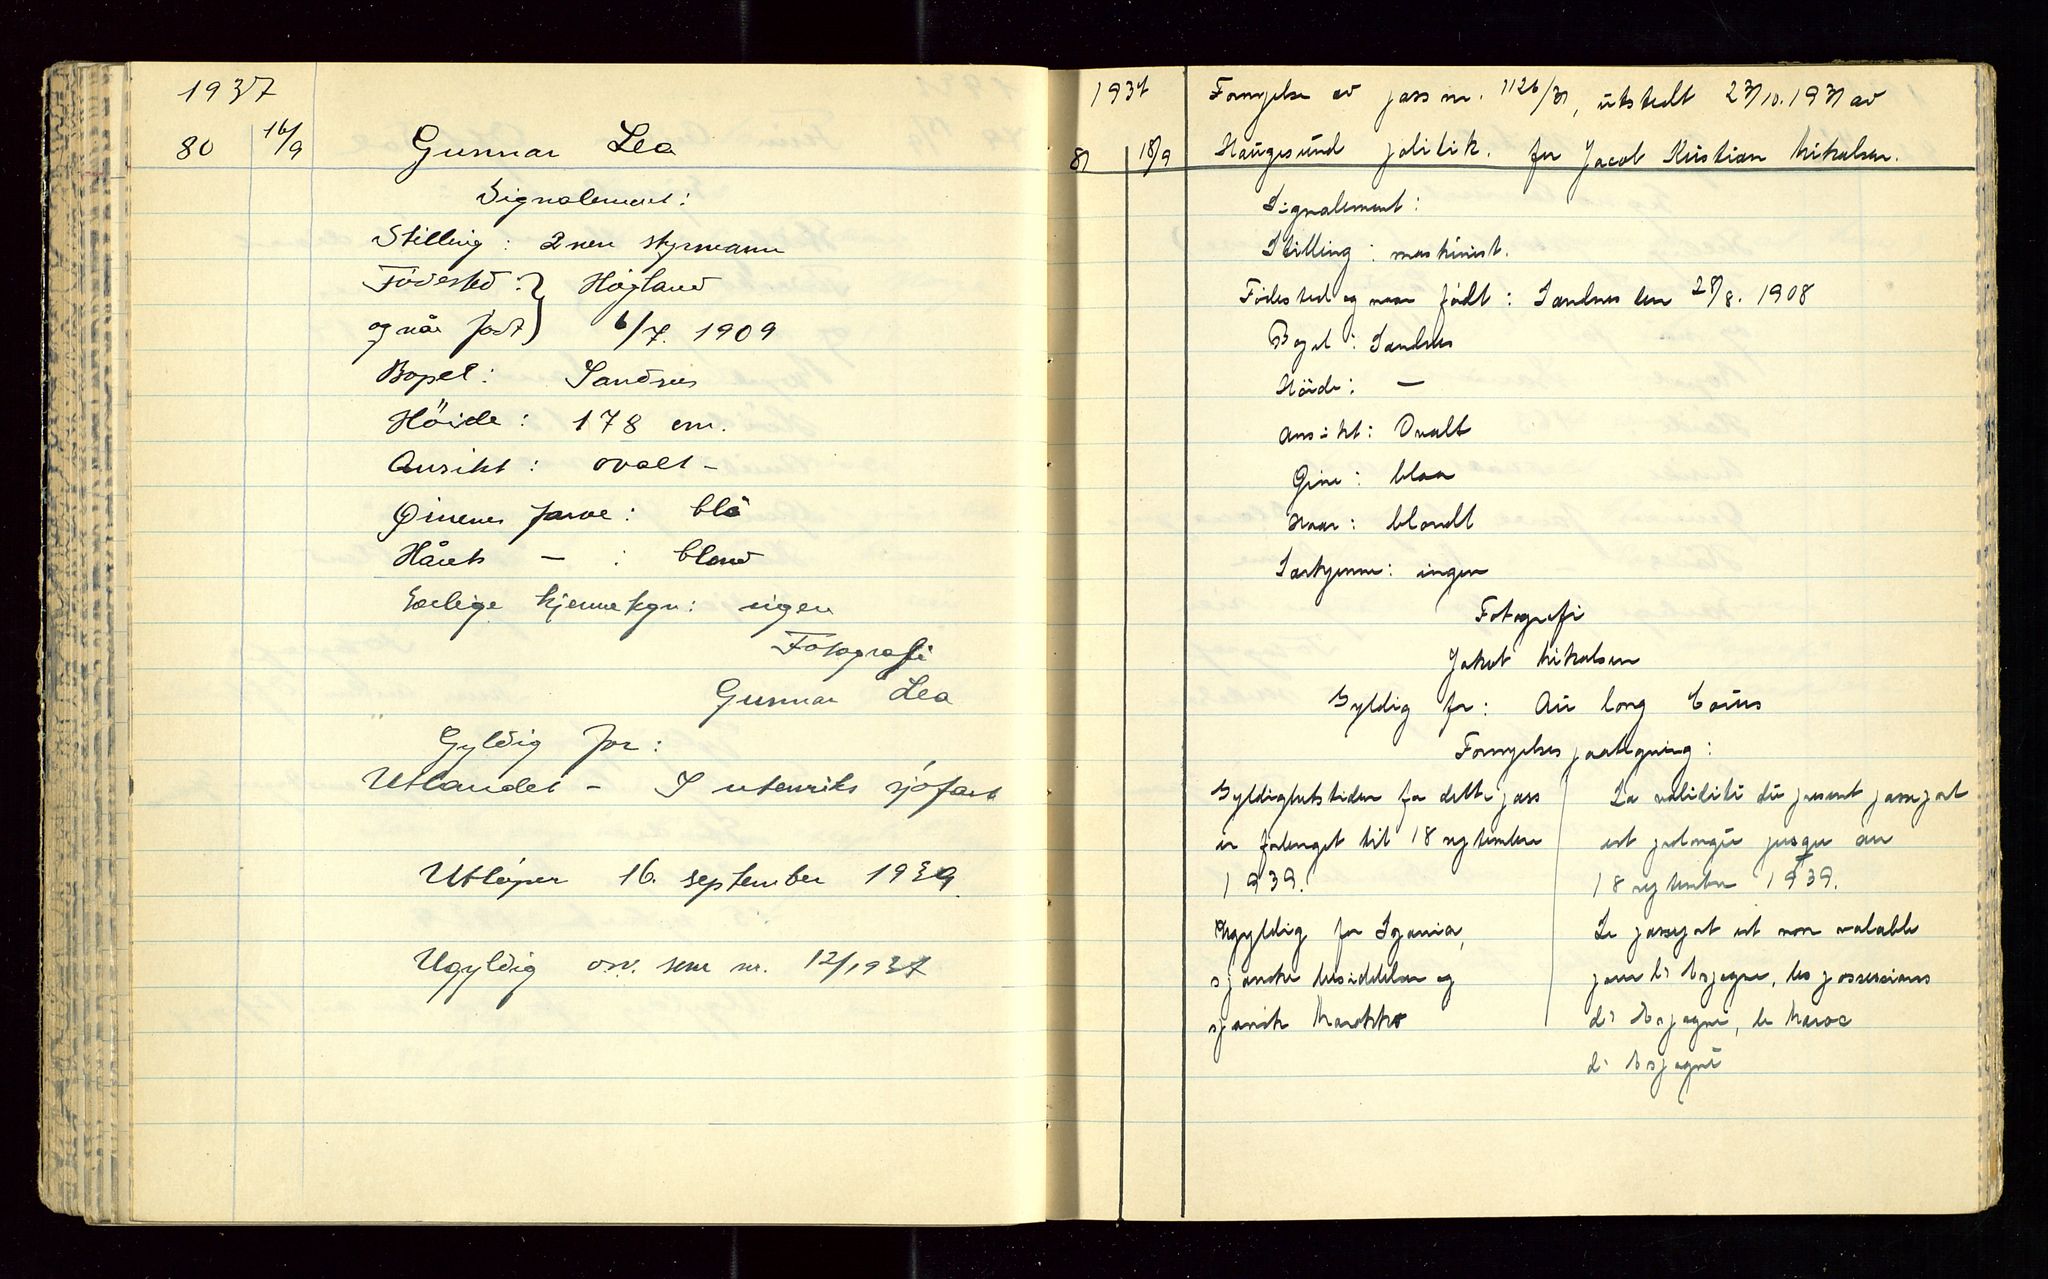 1937
80 16/9 Gunnar Lea
Signalement:
Stilling: 2nen styrmann
Fødested: } Høgland
og når født } 6/7. 1909
Bopel: Sandnes
Höide: 178 cm.
Ansikt: ovalt -
Øinenes farve: blå
Hårets — : blond
Særlige kjennetegn: ingen
Fotografi
Gunnar Lea
Gyldig for:
Utlandet - I utenriks sjøfart
Utløper 16. september 1939.
Ugyldig osv. som nr. 12/1937
1937 Fornyelse av pass nr. 1126/31, utstedt 27/10. 1931 av
81 18/9 Haugesund politik. for Jacob Kristian Mikalsen.
Signalement:
Stilling: maskinist.
Fødested og naar født: Sandnes den 28/8. 1908
Bopel: Sandnes
Höide: —
Ansikt: Ovalt
Øine: blaa
Haar: blondt
Særkjenne: ingen
Fotografi
Jakob Mikalsen
Gyldig for: Au long Cours
Fornyelses paategning:
Gyldighetstiden for dette pass
er forlenget til 18 september
1939.
Ugyldig for Spania,
spanske besiddelser og
spansk Marokko
La validité du present passeport
est prolongée jusque au
18 septembre 1939.
Le passeport est non valable
pour l'Espagne, les possessions
d'Espagne, le Maroc
d'Espagne